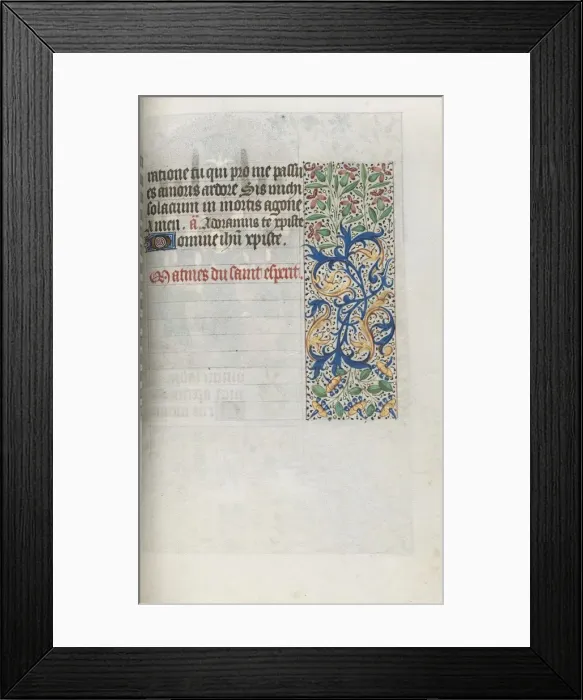 ratione tu qui pro me passu
es amoris ardore Sis michi
solacium in mortis agone
Amen. a. Adoramus te xpiste
Domine ihu xpiste.
Matines du saint esprit.